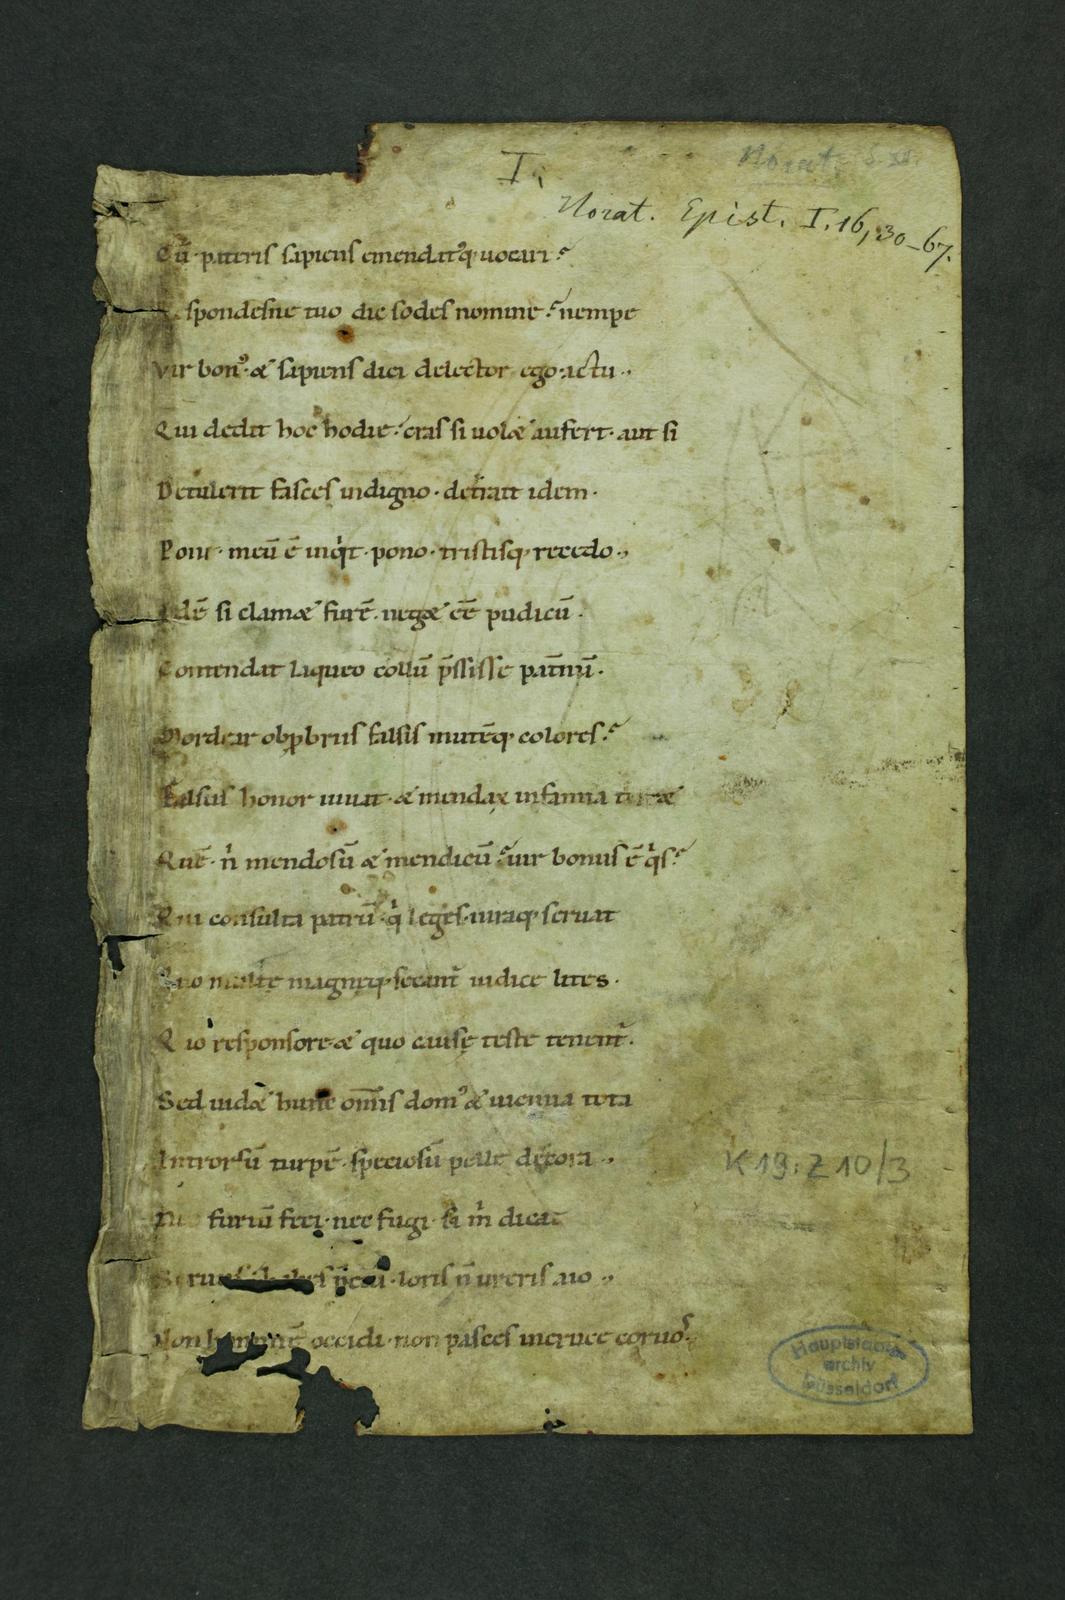 I,
Horat. S. XII.
Horat. Epist. I. 16, 30–67.
Cū pateris sapiens emendatꝰq; uocari?
spondesne tuo dic sodes nomine? nempe
Vir bonꝰ & sapiens dici delector ego. ac tu.,
Qui dedit hoc hodie? cras si uol& aufert. aut si
Detulerit fasces indigno. detrait idem.
Pone. meū ē inqͥt. pono. tristisq; recedo.,
Idē si clam& furē. neg& eē pudicū.
Contendat laqueo collū p̄ssisse pat̄nū.
Mordear obꝓbriis falsis mutēq; colores?
Falsus honor iuuat. & mendax infamia
Quē. n̄ mendosū & mendicū? uir bonus ē qͥs?
Qui consulta patrū. qͥ leges iuraq; seruat
Quo multę magnęq; secant̄ iudice lites.
Quo responsore & quo causę teste tenent̄.
Sed uid& hunc om̄is domꝰ & uicinia tota
Introrsū turpē. speciosū pelle decora.,
furtū feci. nec fugi. si m̄ dicat
p̄ciū. loris n̄ ureris aio.,
Non occidi. non pasces incruce coruos.
K 19: Z 10/3
Hauptstaats-
archiv
Düsseldorf